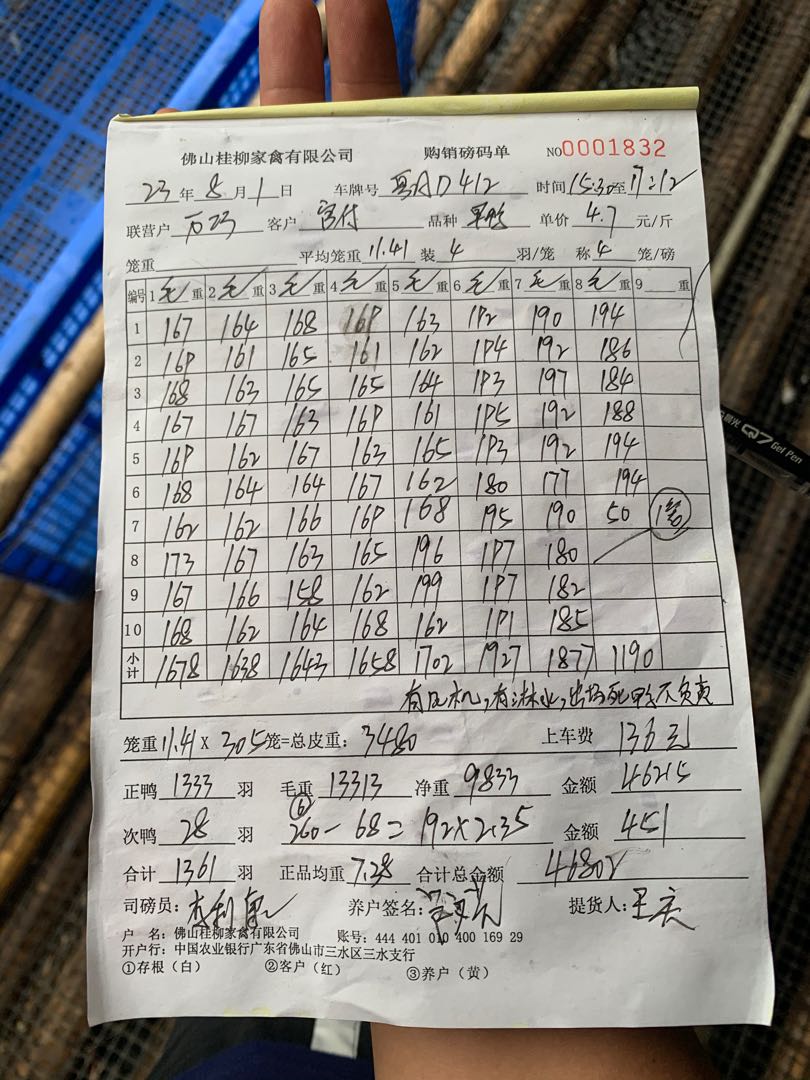 佛山桂柳家禽有限公司 购销磅码单 NO 0001832
23 年 8 月 1 日 车牌号 D412 时间 15:30 至 17:12
联营户 客户 品种 单价 4.7 元/斤
笼重 平均笼重 11.41 装 4 羽/笼 称 4 笼/磅
编号 1 毛 重 2 毛 重 3 毛 重 4 毛 重 5 毛 重 6 毛 重 7 毛 重 8 毛 重 9 重
1 167 164 168 16P 163 1P2 190 194
2 16P 161 165 161 162 1P4 192 186
3 168 163 165 165 164 1P3 197 184
4 167 167 163 16P 161 1P5 192 188
5 16P 162 167 163 165 1P3 192 194
6 168 164 164 167 162 180 177 194
7 162 162 166 16P 168 195 190 50
8 173 167 163 165 196 1P7 180
9 167 166 158 162 199 1P7 182
10 168 162 164 168 162 1P1 185
小计 1678 1638 1643 1658 1702 1927 1877 1190
有风机,有淋水,出场死 不负责
笼重 11.41 X 305 笼=总皮重: 3480 上车费 136元
正鸭 1333 羽 毛重 13313 净重 9833 金额 46215
⑥
次鸭 28 羽 260 - 68 = 192 X 2.35 金额 451
合计 1361 羽 正品均重 7.28 合计总金额
司磅员: 养户签名: 提货人: 王庆
户 名: 佛山桂柳家禽有限公司 账号: 444 401 010 400 169 29
开户行: 中国农业银行广东省佛山市三水区三水支行
①存根(白) ②客户(红) ③养户(黄)
晨光 Q7 Gel Pen